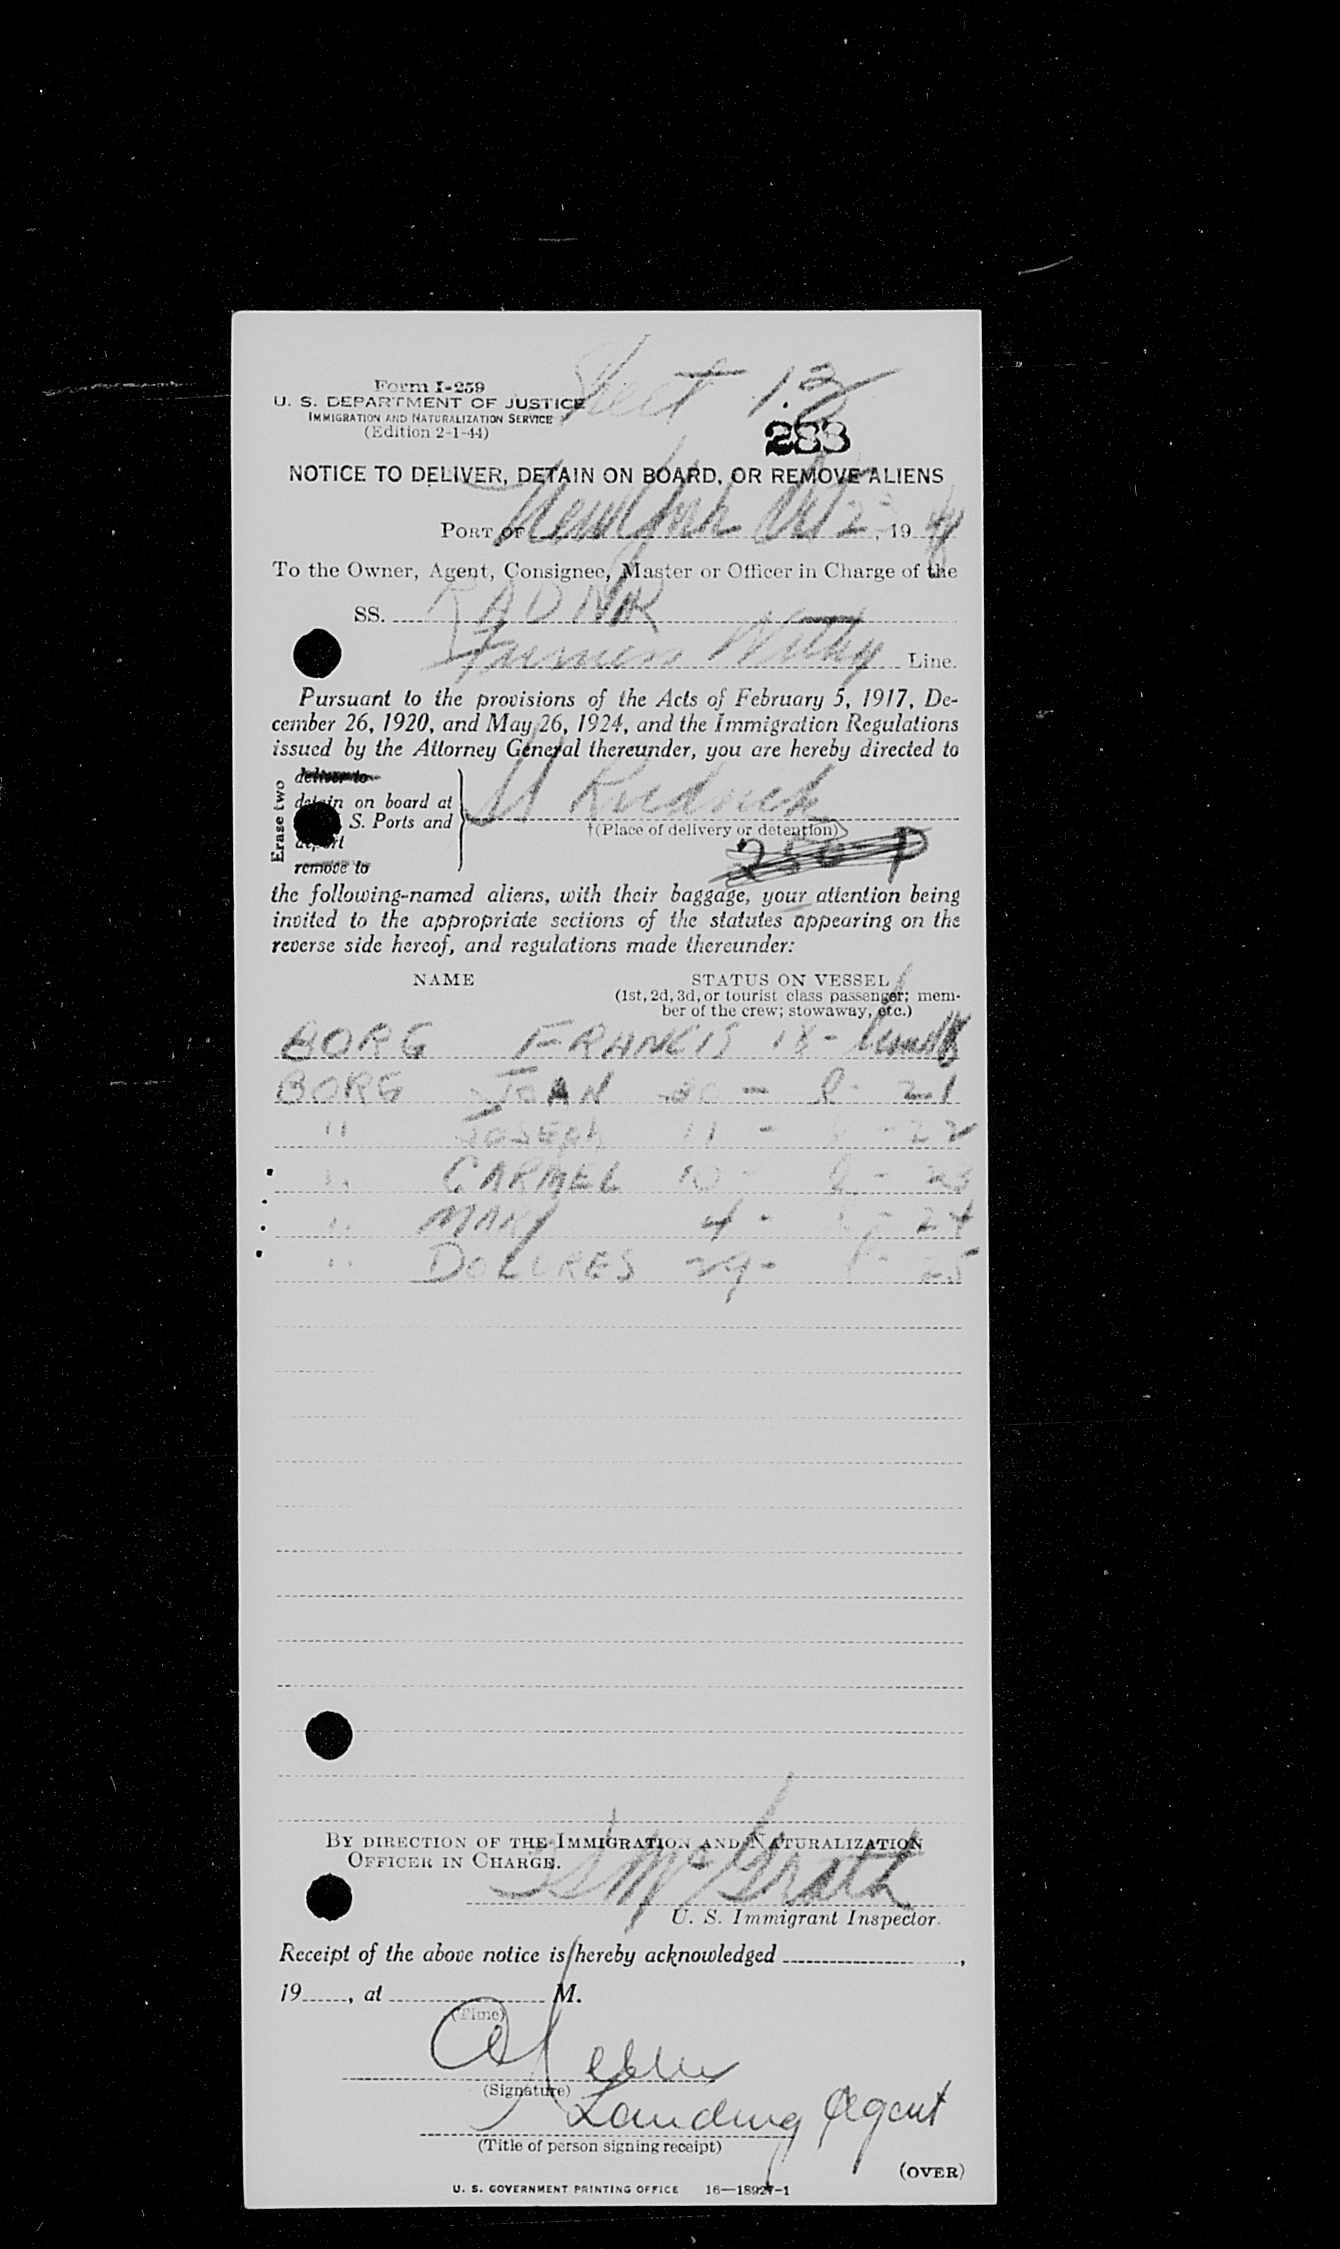 Form I-259
U. S. DEPARTMENT OF JUSTICE
IMMIGRATION AND NATURALIZATION SERVICE
(Edition 2-1-44)
Sheet 13
283
NOTICE TO DELIVER, DETAIN ON BOARD, OR REMOVE ALIENS
PORT OF New York Oct 2, 19
To the Owner, Agent, Consignee, Master or Officer in Charge of the
SS. RADNR
Furness Withy Line.
Pursuant to the provisions of the Acts of February 5, 1917, De-
cember 26, 1920, and May 26, 1924, and the Immigration Regulations
issued by the Attorney General thereunder, you are hereby directed to
Erase two
deliver to
detain on board at
S. Ports and
deport
remove to
(Place of delivery or detention)
the following-named aliens, with their baggage, your attention being
invited to the appropriate sections of the statutes appearing on the
reverse side hereof, and regulations made thereunder:
NAME STATUS ON VESSEL
(1st, 2d, 3d, or tourist class passenger; mem-
ber of the crew; stowaway, etc.)
BORG FRANCIS 18 -
BORG JOAN - 21
" JOSEPH 11 - - 22
" CARMEL 10 - - 23
" MARY 4 - - 24
" DOLORES 29 - - 25
BY DIRECTION OF THE IMMIGRATION AND NATURALIZATION
OFFICER IN CHARGE.
McGrath
U. S. Immigrant Inspector.
Receipt of the above notice is hereby acknowledged ,
19 , at M.
(Time)
(Signature)
Landing Agent
(Title of person signing receipt)
(OVER)
U. S. GOVERNMENT PRINTING OFFICE 16—18927-1